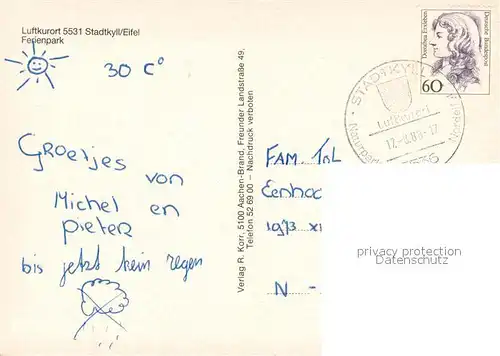 Luftkurort 5531 Stadtkyll/Eifel
Ferienpark
30 C°
Groetjes von
Michel en
Pieter
bis jetzt kein regen
Verlag R. Korr, 5100 Aachen-Brand, Freunder Landstraße 49,
Telefon 52 69 00 – Nachdruck verboten
Dorothea Erxleben
Deutsche Bundespost
60
STADTKYLL
Luftkurort
Naturpark
FAM.
Eenhoo
1973
N -
privacy protection
Datenschutz